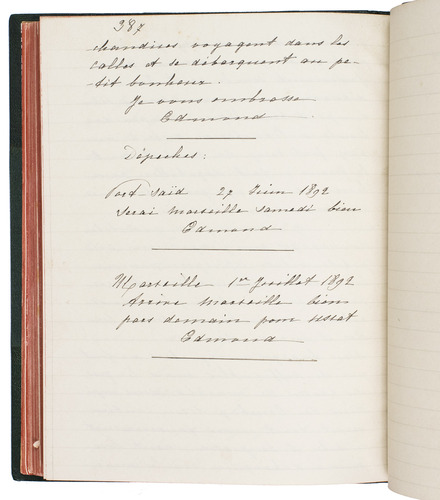 387
chandises voyagent dans les
calles et se débarquent au pe-
tit bonheur.
Je vous embrasse
Edmond
Dépeches:
Port Said 27 Juin 1892
Serai Marseille Samedi bien
Edmond
Marseille 1er Juillet 1892
Arrive Marseille bien
pars demain pour Ussat
Edmond